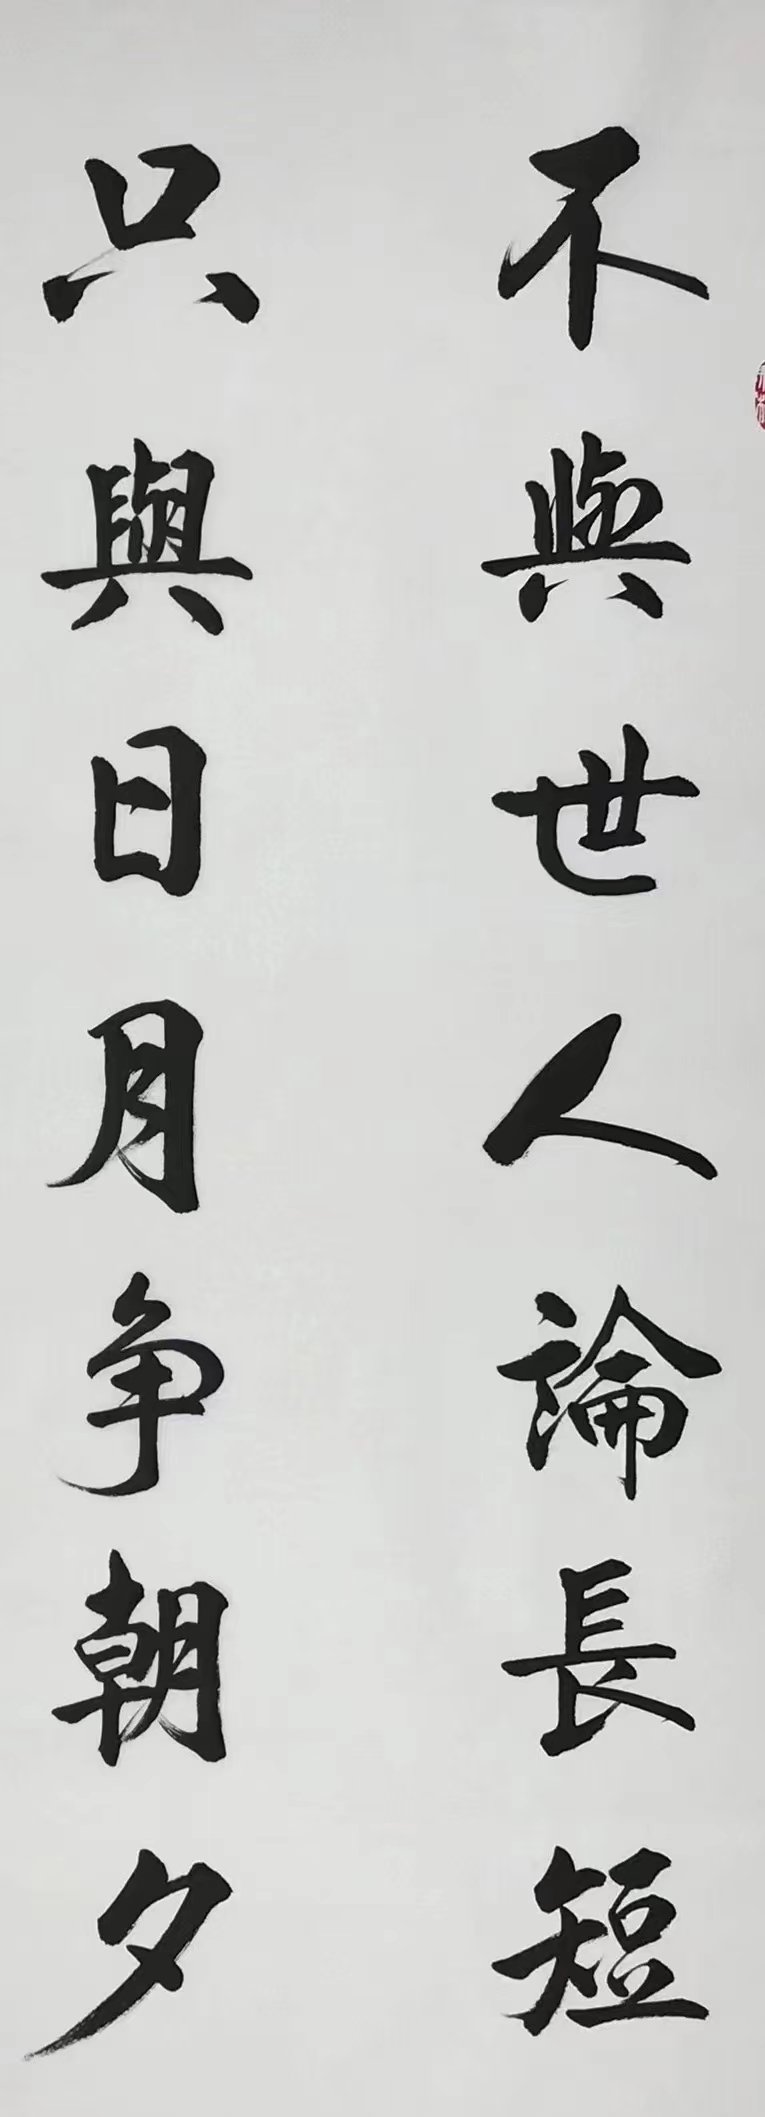 不與世人論長短
只與日月争朝夕